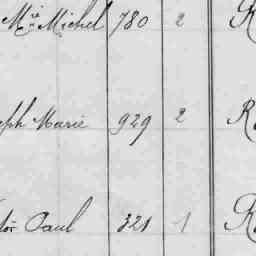 Michel 780 2
eph Marie 929 2
tor Paul 321 1